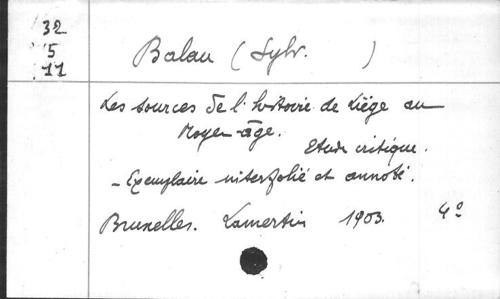 32
5
11
Balau (Sylv. )
Les sources de l'histoire de Liége au
Moyen-âge.
Etude critique.
- Exemplaire interfolié et annoté.
Bruxelles. Lamertin 1903. 4°